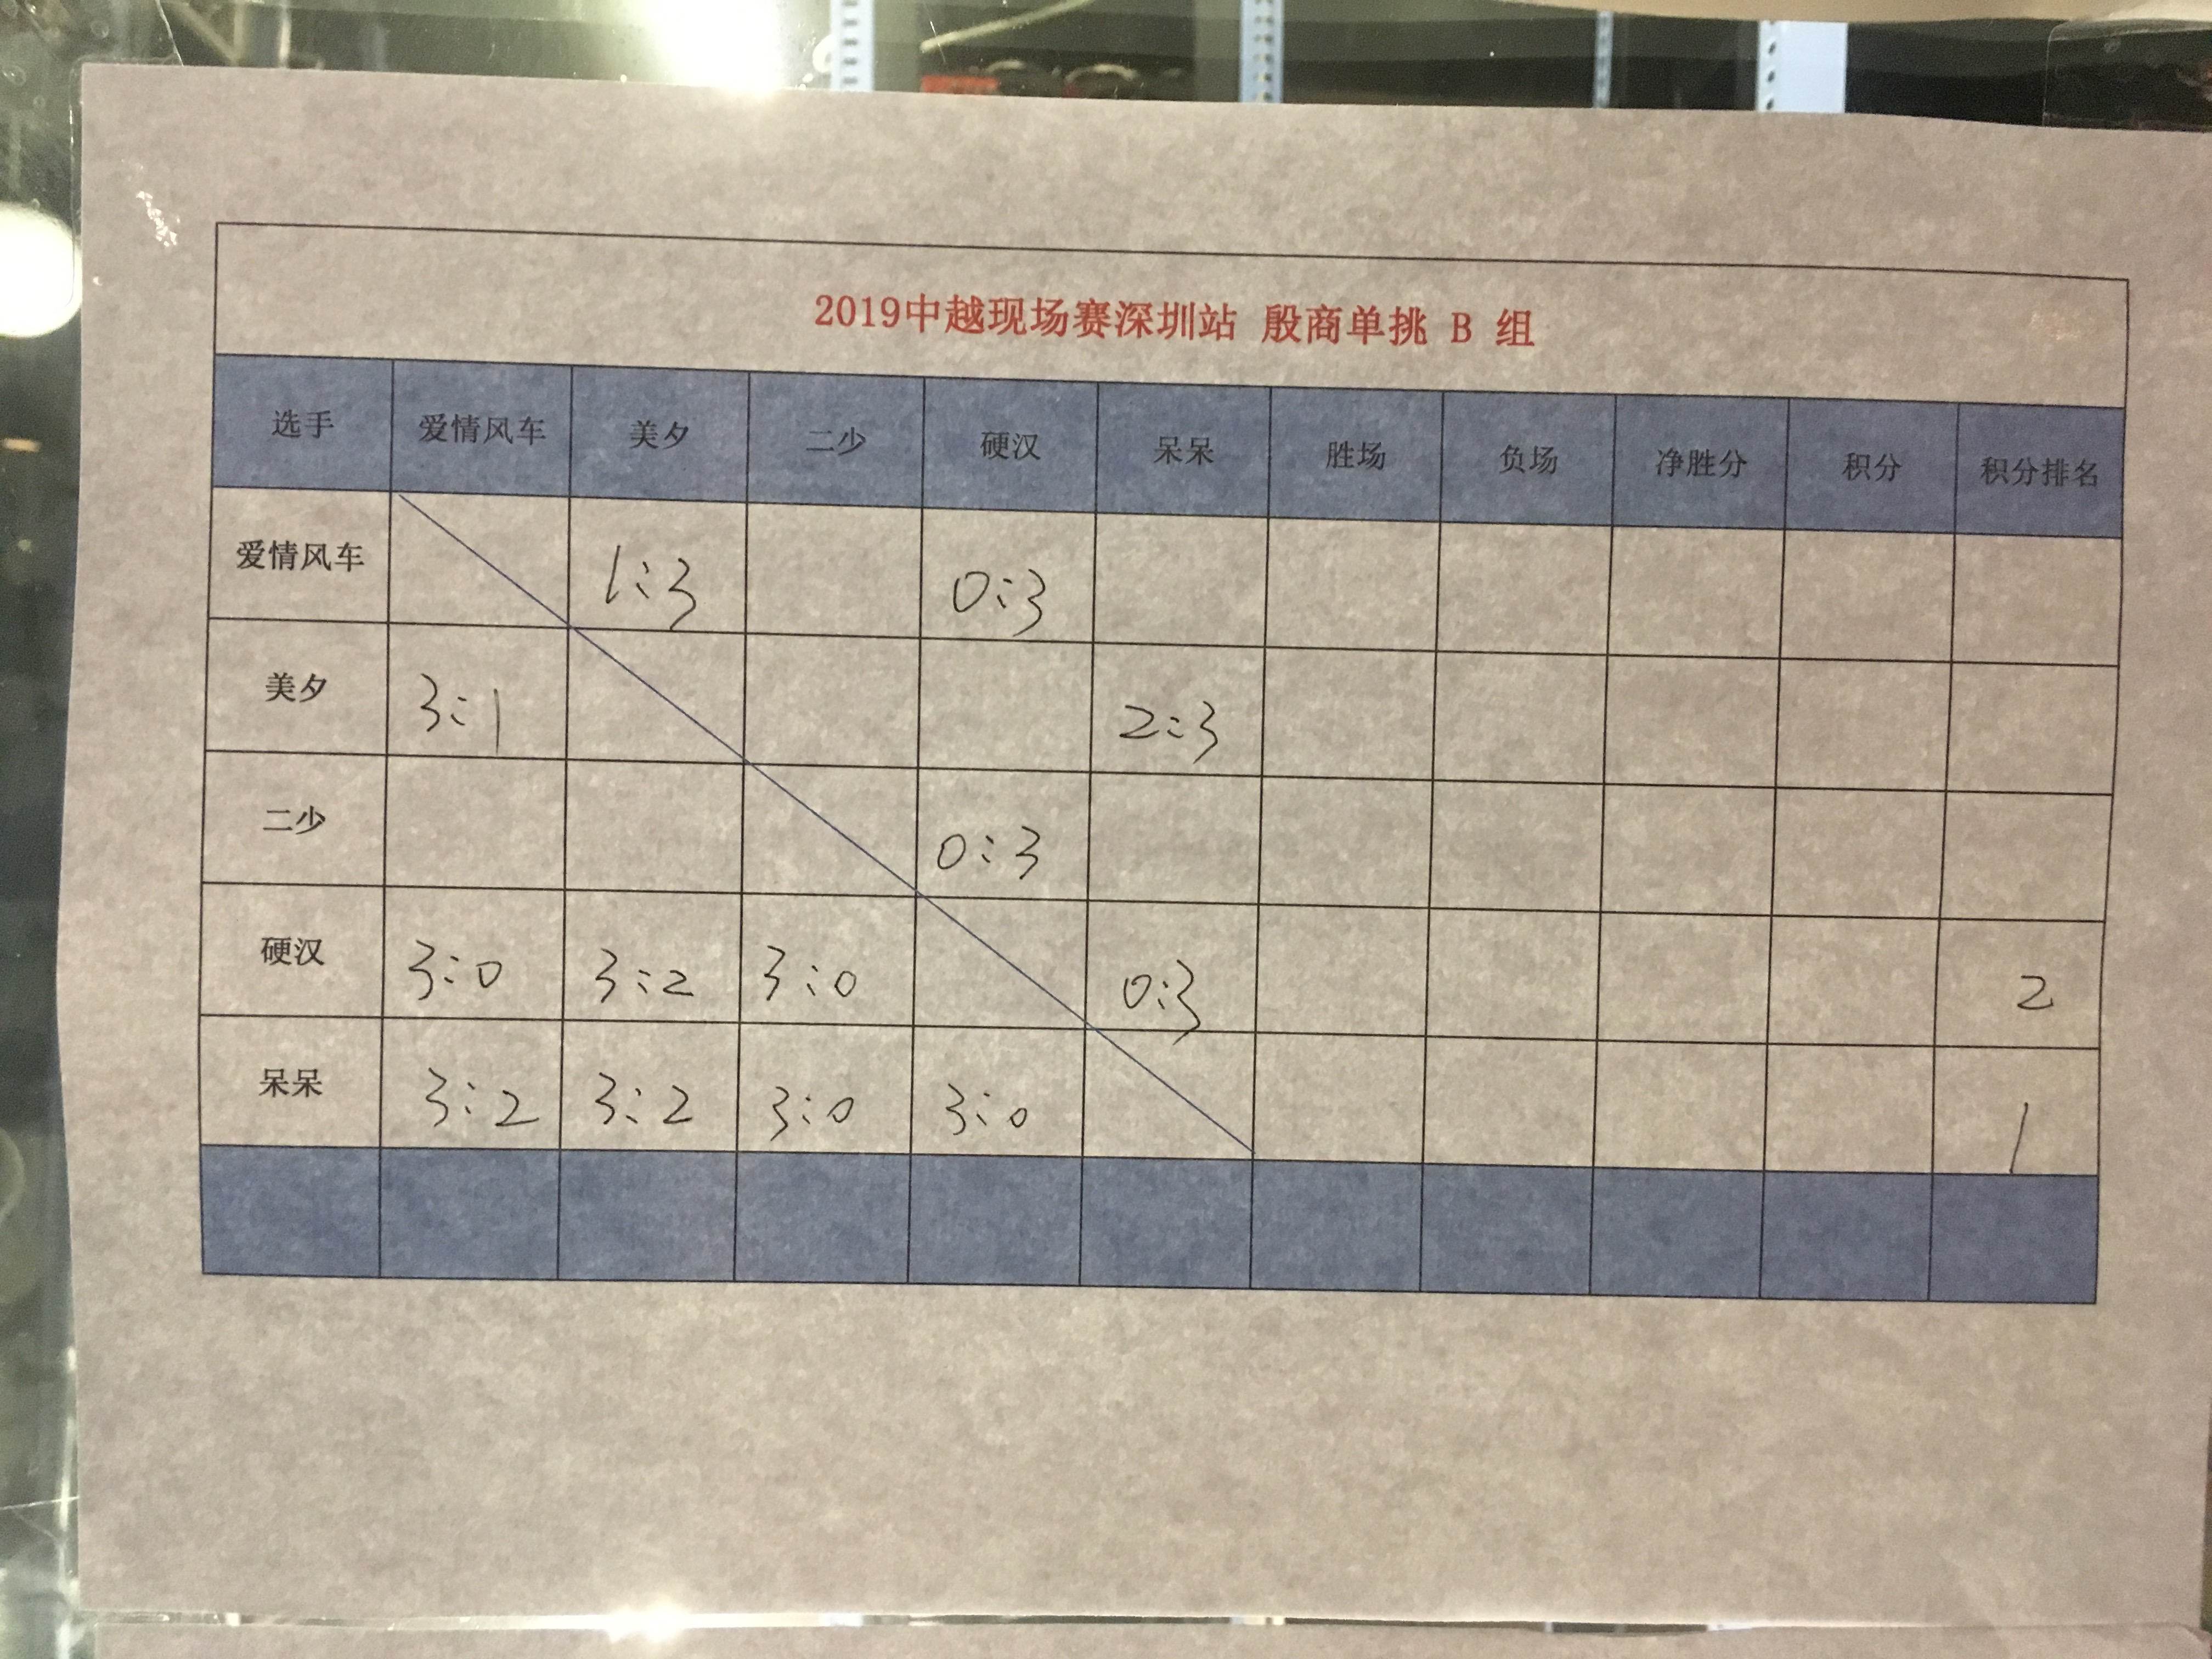 2019中越现场赛深圳站 殷商单挑 B 组
选手 爱情风车 美夕 二少 硬汉 呆呆 胜场 负场 净胜分 积分 积分排名
爱情风车 1:3 0:3
美夕 3:1 2:3
二少 0:3
硬汉 3:0 3:2 3:0 0:3 2
呆呆 3:2 3:2 3:0 3:0 1